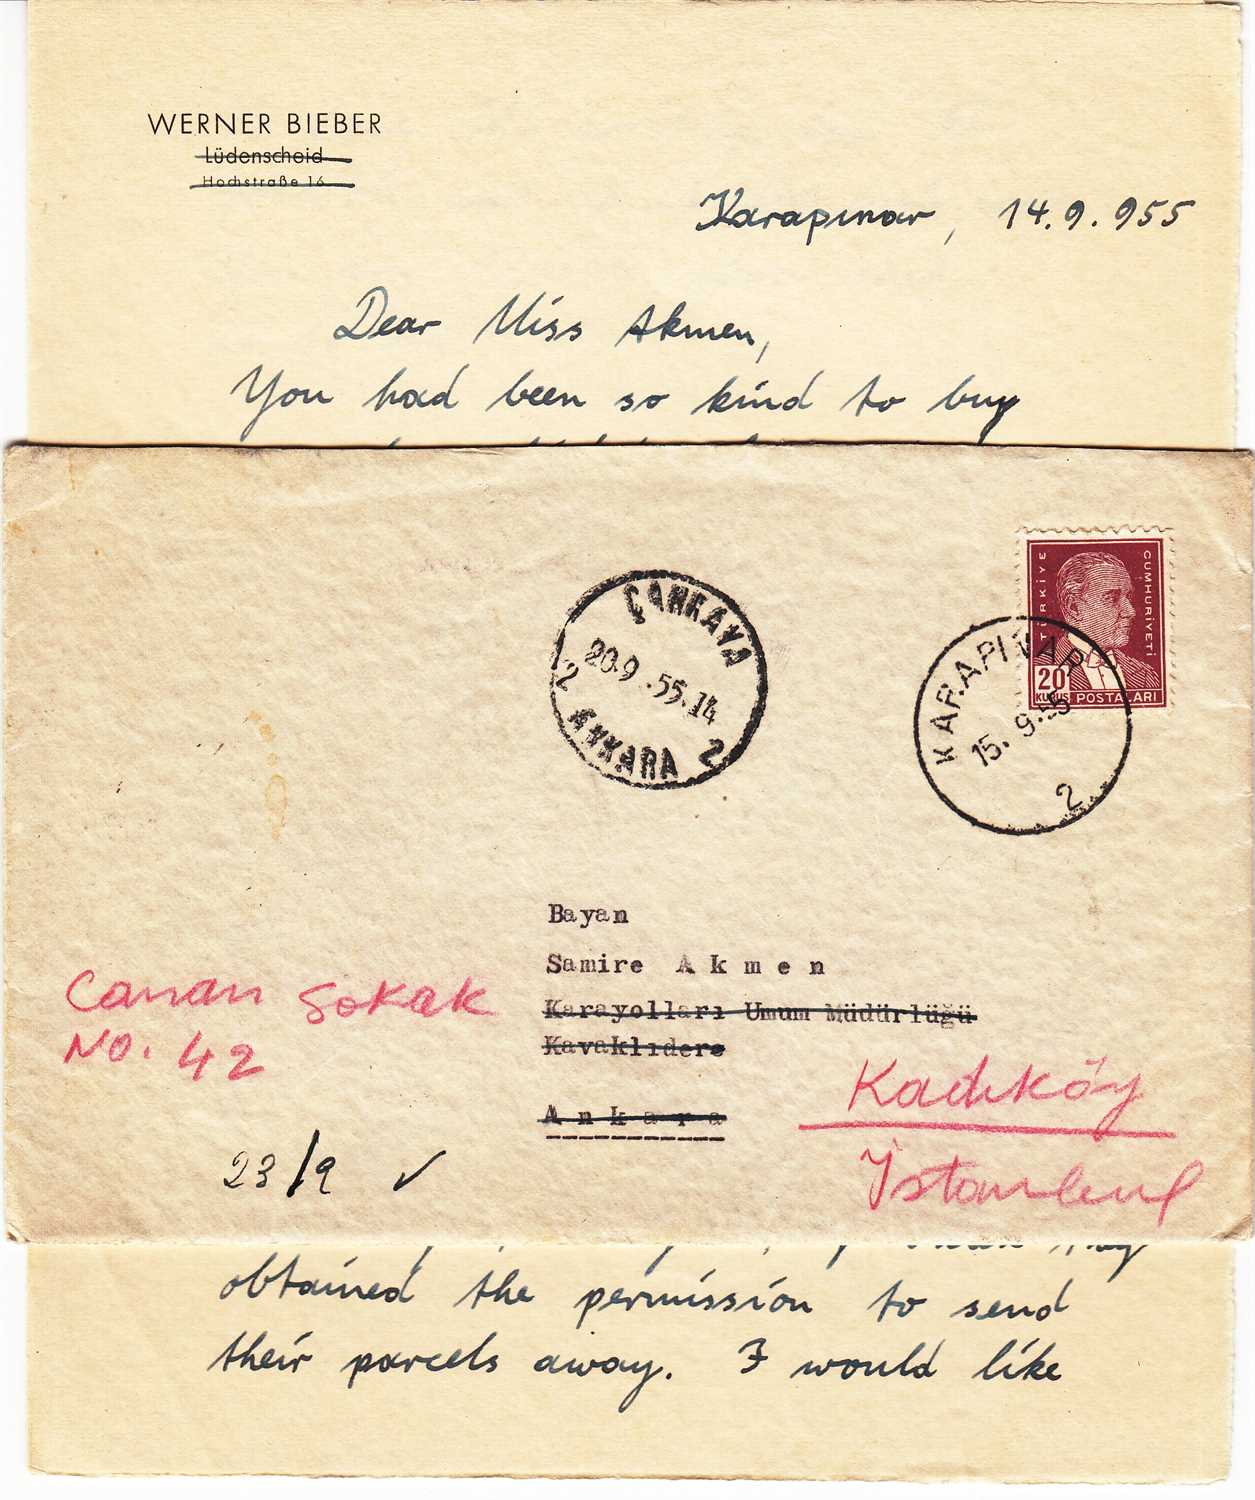 WERNER BIEBER
Lüdenscheid
Hochstraße 16
Karapınar, 14.9.955
Dear Miss Akmen,
You had been so kind to buy
TÜRKİYE
CUMHURİYETİ
20
KURUŞ POSTALARI
KARAPINAR
15.9.55
2
ÇANKAYA
20.9.55.14
2 ANKARA 2
Bayan
Samire Akmen
Karayolları Umum Müdürlüğü
Kavaklıdere
Ankara
Canan Sokak
No. 42
Kadıköy
İstanbul
23/9 ✓
obtained the permission to send
their parcels away. I would like